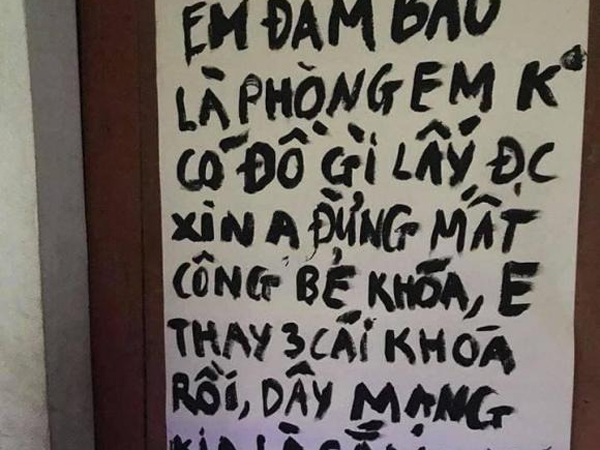 EM ĐẢM BẢO
LÀ PHÒNG EM K
CÓ ĐỒ GÌ LẤY ĐC
XIN A ĐỪNG MẤT
CÔNG BẺ KHÓA, E
THAY 3 CÁI KHOÁ
RỒI, DÂY MẠNG